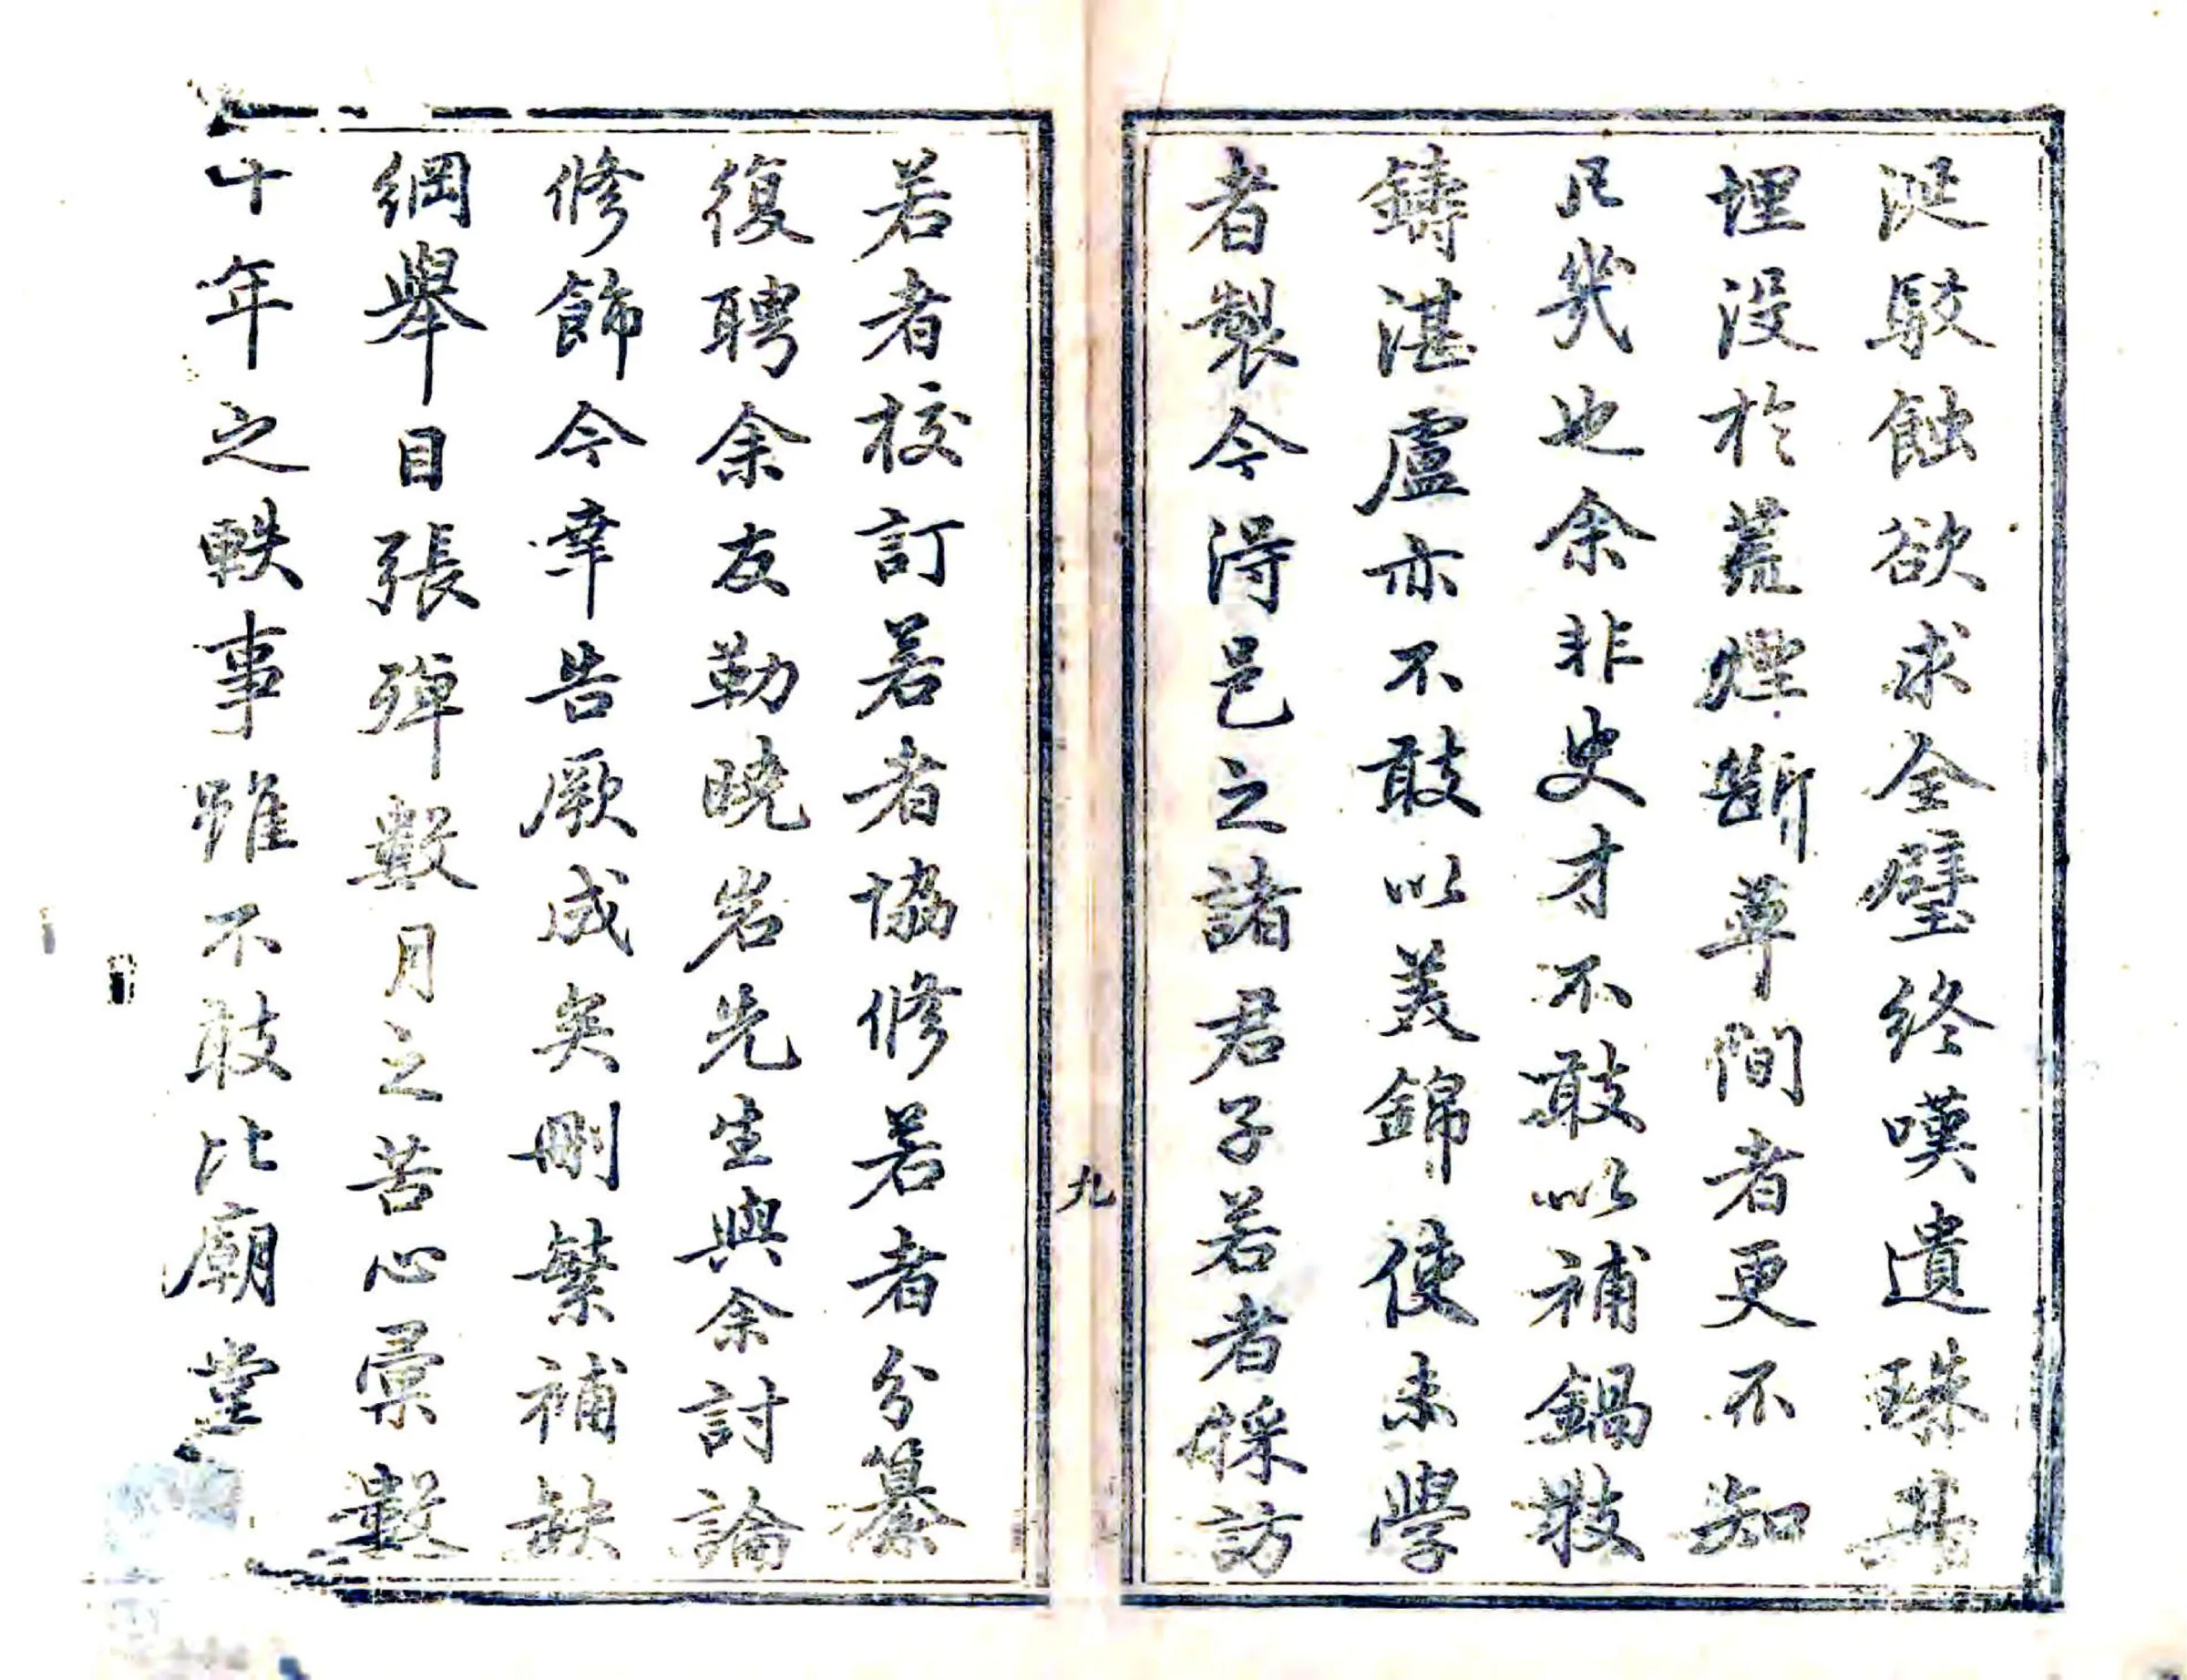 涎駁蝕欲求全璧終嘆遺珠其
埋没於荒煙斷草間者更不知
凡幾也余非史才不敢以補鍋敢
鑄湛盧亦不敢以美錦使未學
者製今淂邑之諸君子若者採訪
九
若者校訂若者協修若者分纂
復聘余友勒曉岩先生與余討論
修飾今幸告厥成矣刪繁補缺
綱舉目張殫數月之苦心彙數
十年之軼事雖不敢比廟堂